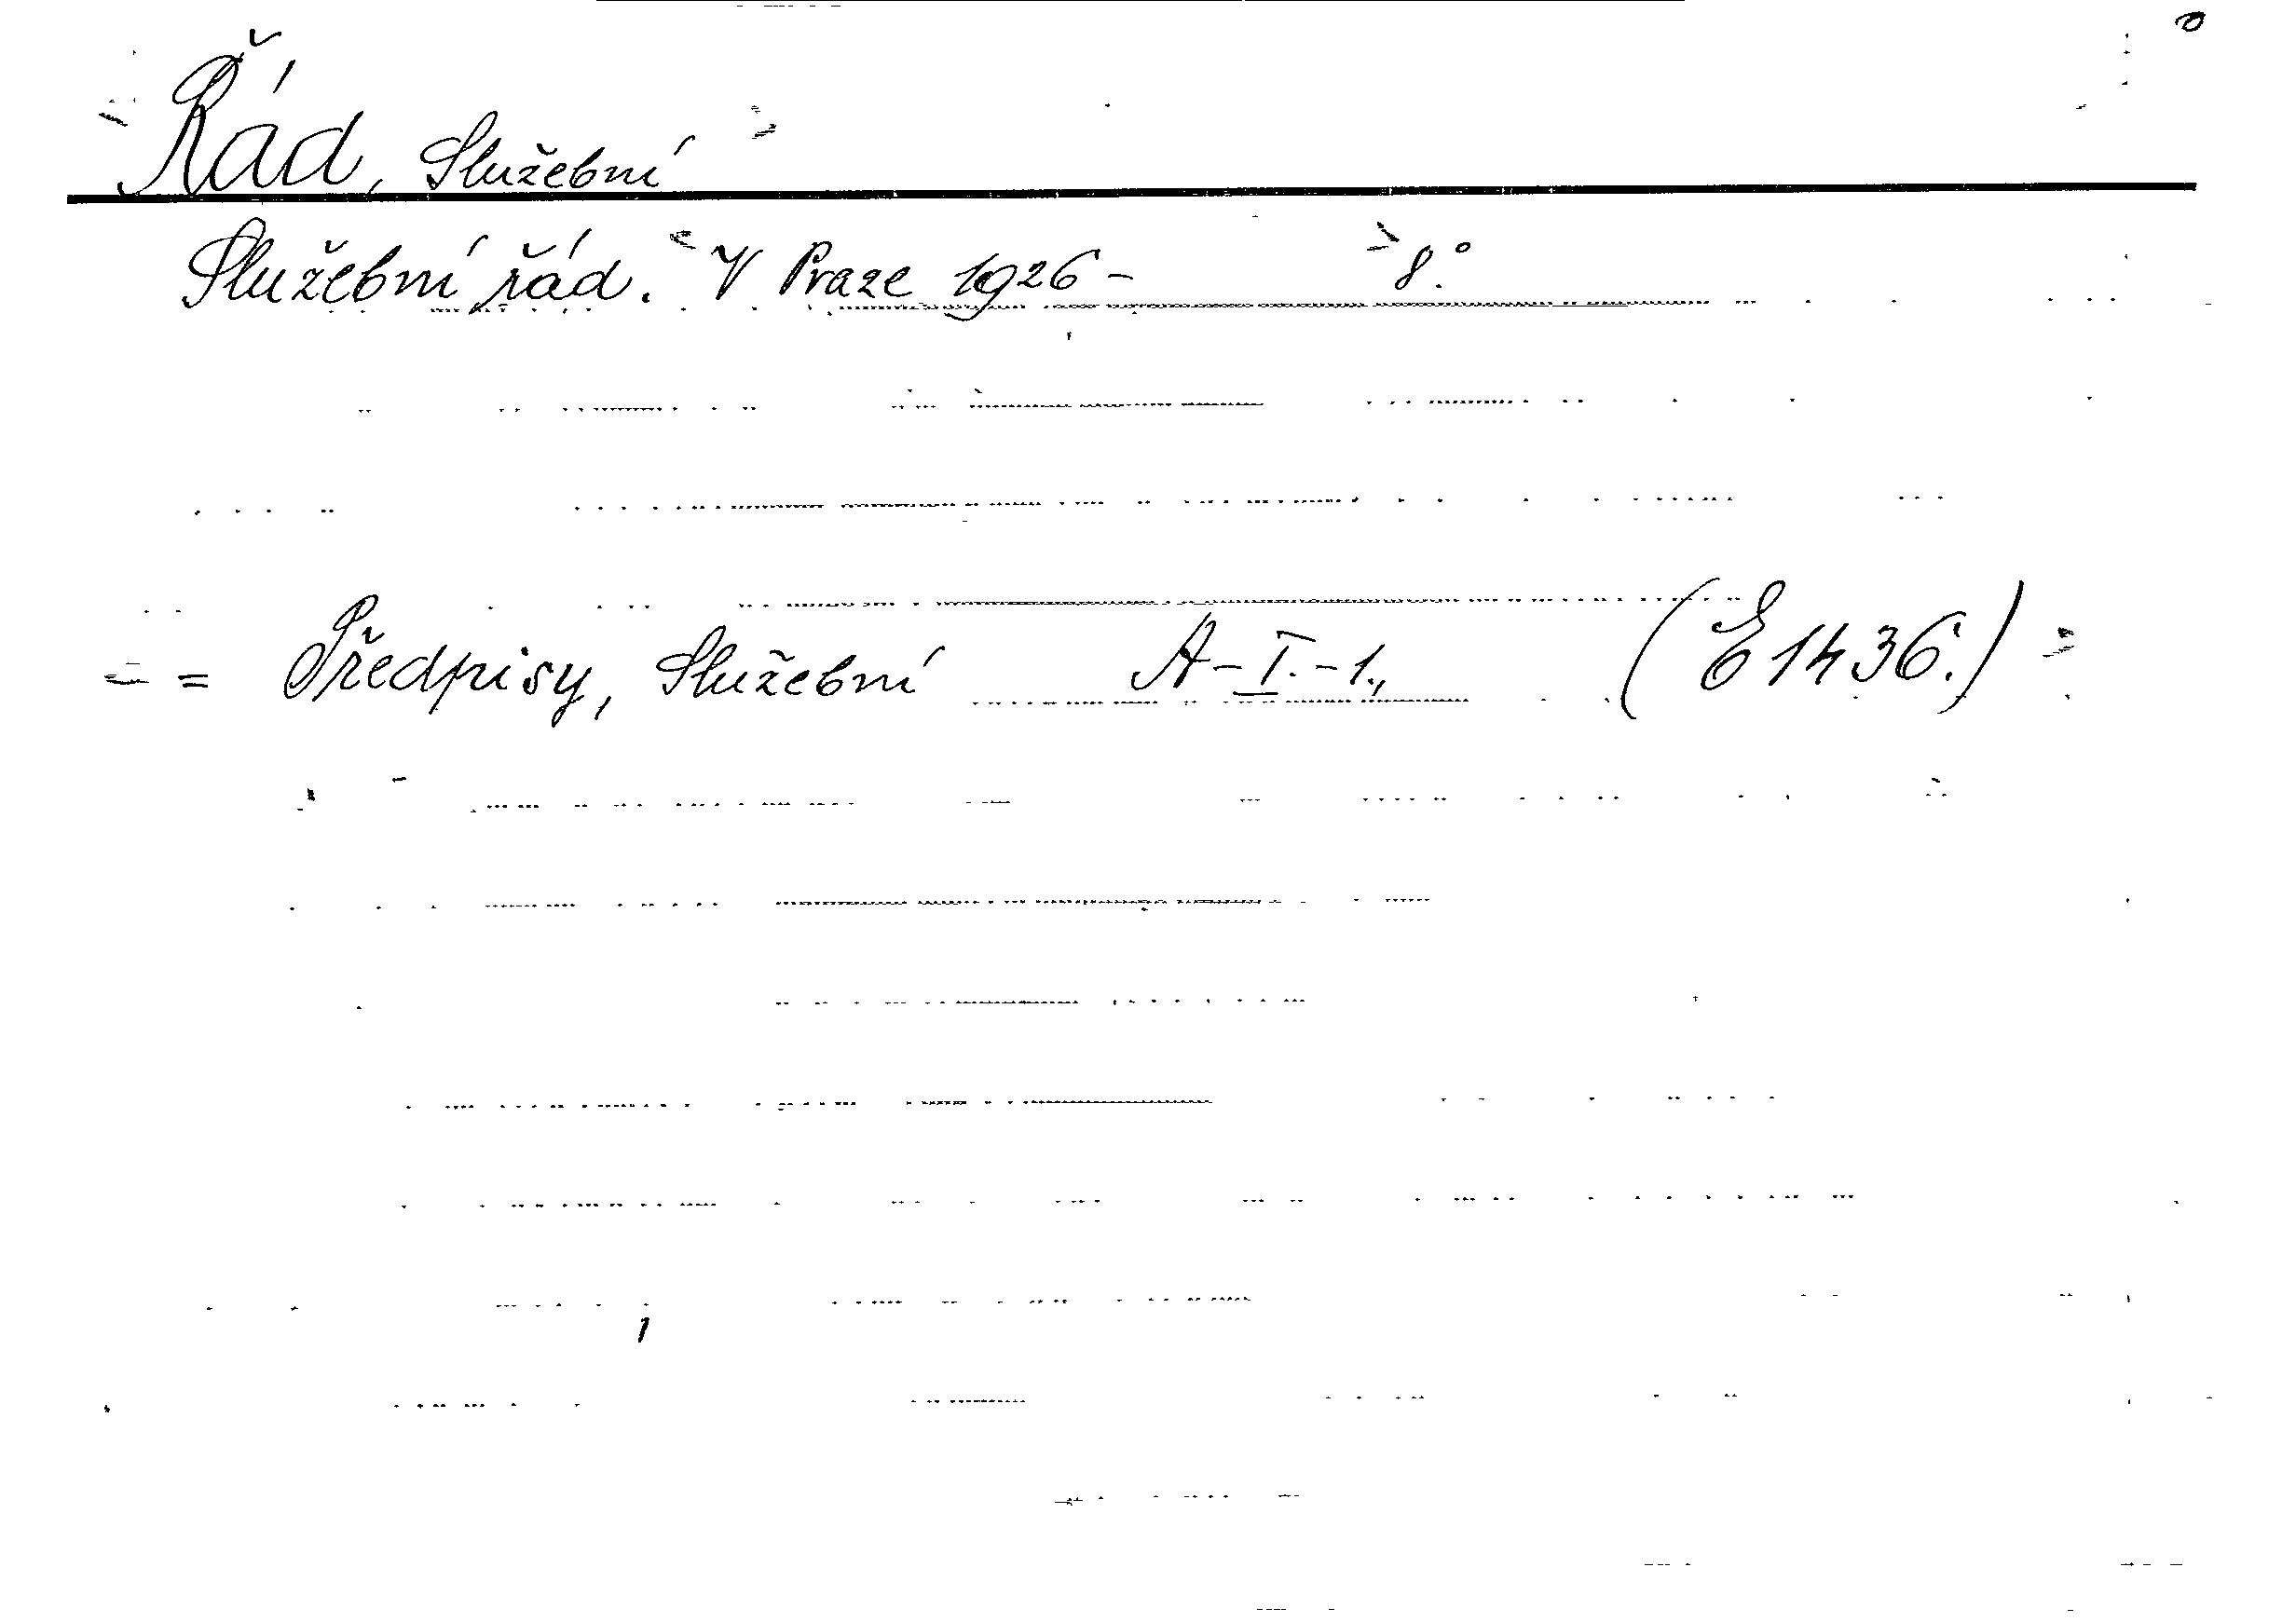 Řád, Služební
Služební řád. V Praze 1926 - 8.°
= Předpisy, Služební A-I.-1., (E 1436.)